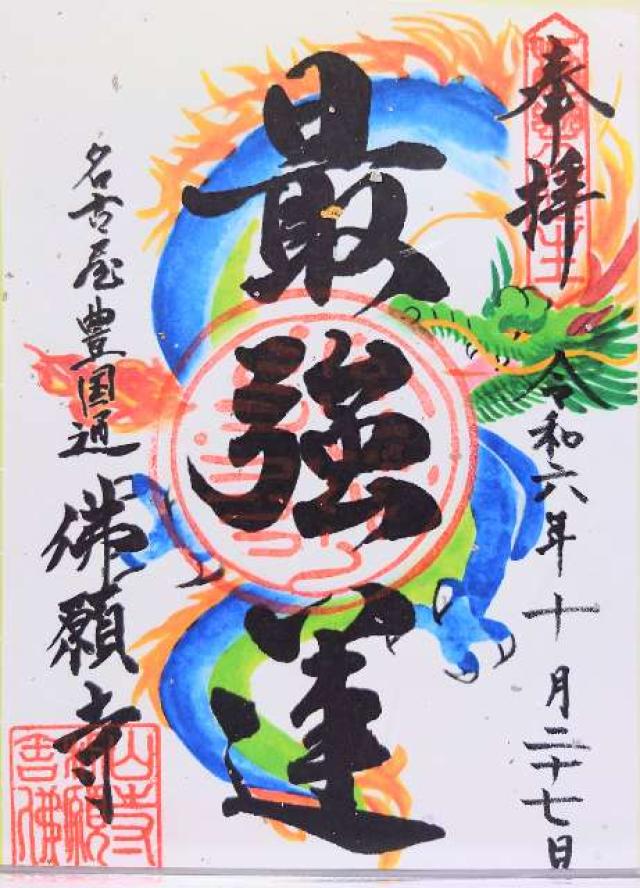 奉拝
令和六年十月二十七日
最強運
名古屋豊国通 佛願寺